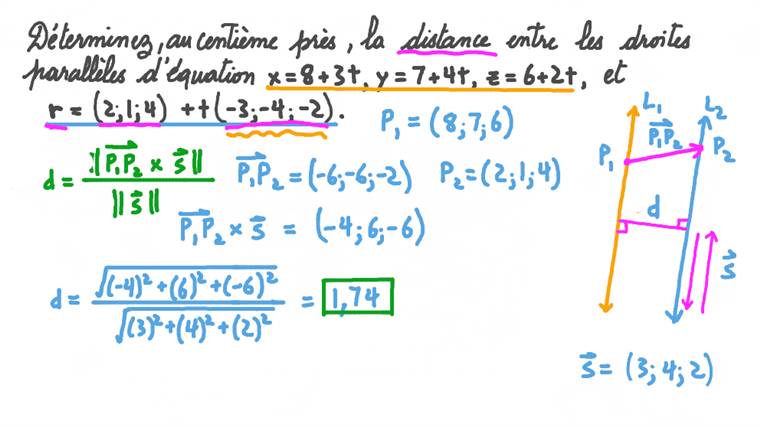 Déterminez, au centième près, la distance entre les droites
parallèles d'équation x=8+3t, y=7+4t, z=6+2t, et
r=(2;1;4) +t(-3;-4;-2).
P₁=(8;7;6)
d= ||P₁P₂ × s|| / ||s||
P₁P₂=(-6;-6;-2)
P₂=(2;1;4)
P₁P₂ × s = (-4;6;-6)
d= √(-4)²+(6)²+(-6)² / √(3)²+(4)²+(2)² = 1,74
L₁
L₂
P₁P₂
P₁
P₂
d
s
s=(3;4;2)